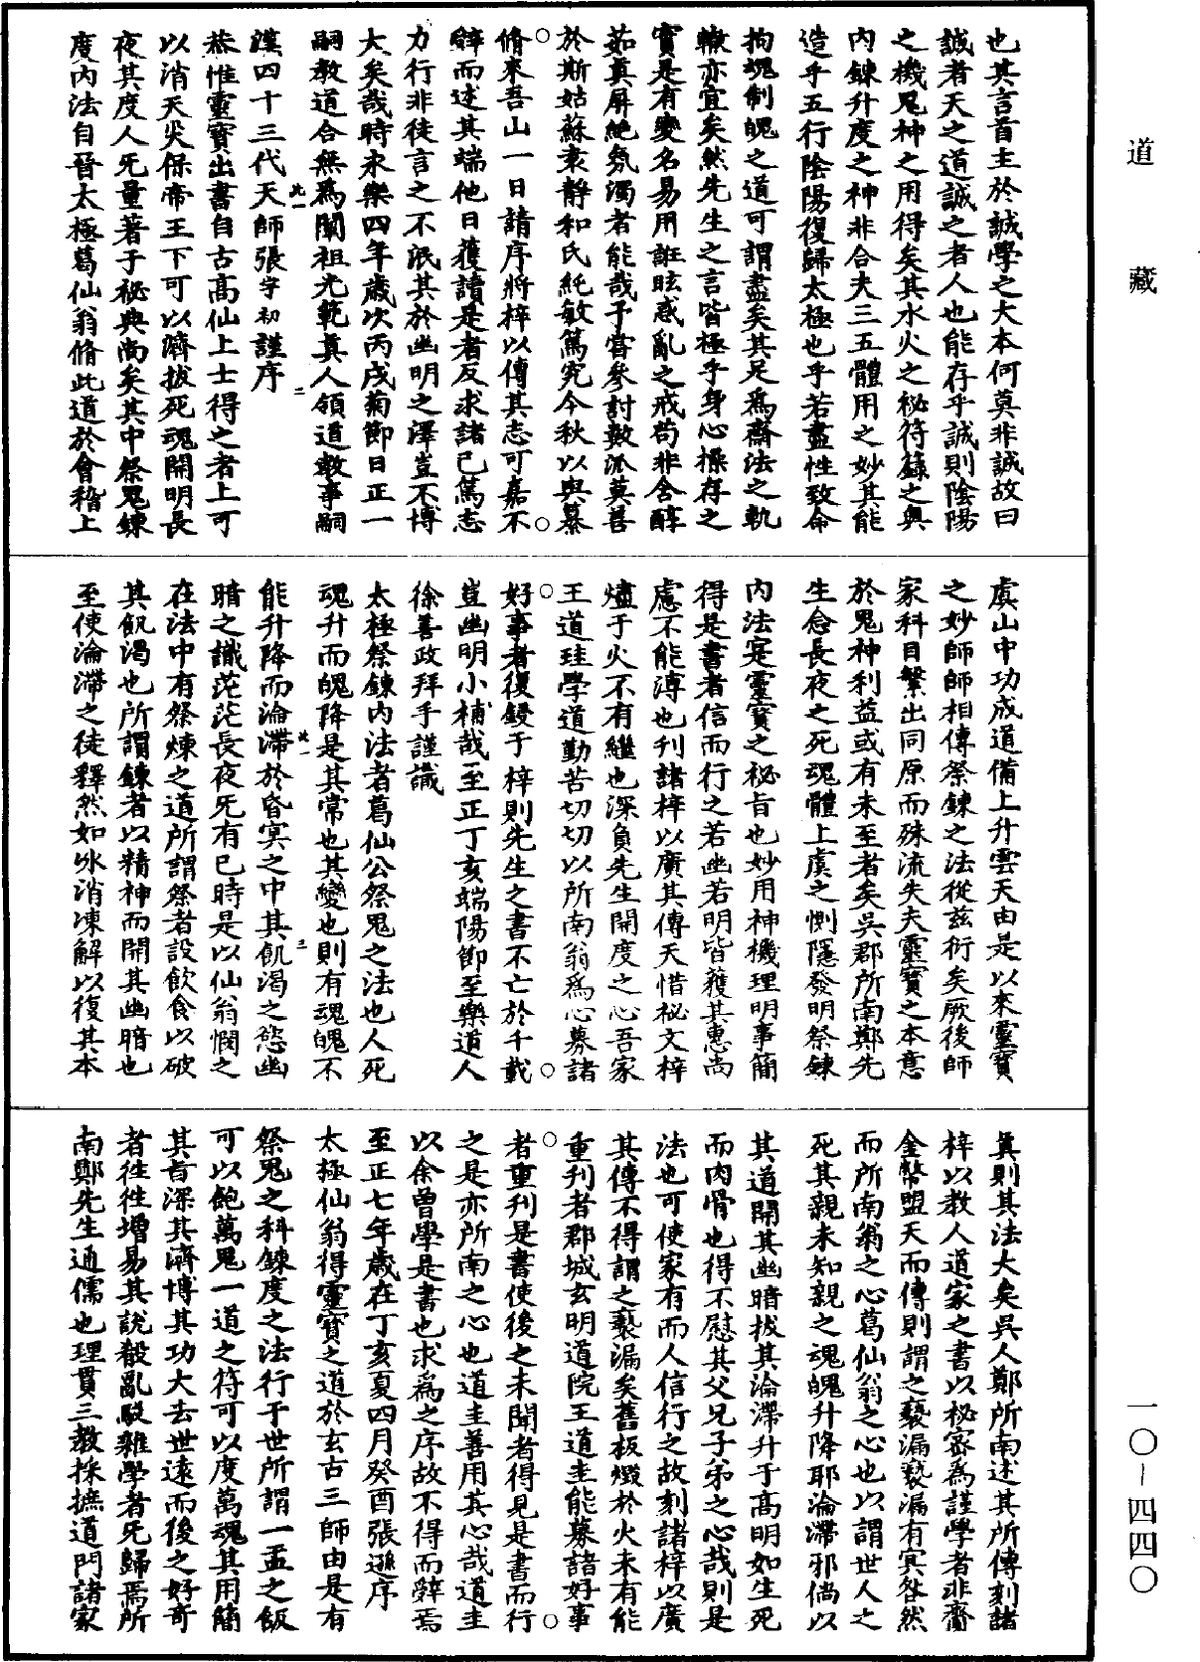 道藏
一〇-四四〇
也其言首主於誠學之大本何莫非誠故曰
誠者天之道誠之者人也能存乎誠則陰陽
之機鬼神之用得矣其水火之祕符籙之奧
內鍊升度之神非合夫三五體用之妙其能
造乎五行陰陽復歸太極也乎若盡性致命
拘魂制魄之道可謂盡矣其足爲齋法之軌
轍亦宜矣然先生之言皆極乎身心操存之
實是有變名易用誑眩惑亂之戒苟非含醇
茹真屏絶氛濁者能哉予嘗參討數派莫善
於斯姑蘇袁靜和氏純敏篤究今秋以與纂
脩來吾山一日請序將梓以傳其志可嘉不
辭而述其端他日獲讀是者反求諸己篤志
力行非徒言之不泯其於幽明之澤豈不博
大矣哉時永樂四年歲次丙戌菊節日正一
嗣教道合無爲闡祖光範真人領道教事嗣
漢四十三代天師張宇初謹序
恭惟靈寶出書自古高仙上士得之者上可
以消天災保帝王下可以濟拔死魂開明長
夜其度人无量著于祕典尚矣其中祭鬼鍊
度內法自晉太極葛仙翁脩此道於會稽上
虞山中功成道備上升雲天由是以來靈寶
之妙師師相傳祭鍊之法從兹衍矣厥後師
家科目繁出同原而殊流失夫靈寶之本意
於鬼神利益或有未至者矣吳郡所南鄭先
生念長夜之死魂體上虞之惻隱發明祭鍊
內法寔靈寶之秘旨也妙用神機理明事簡
得是書者信而行之若幽若明皆蒦其惠尚
慮不能溥也刋諸梓以廣其傳天惜祕文梓
燼于火不有繼也深負先生開度之心吾家
王道珪學道勤苦切切以所南翁爲心募諸
好事者復鋟于梓則先生之書不亡於千載
豈幽明小補哉至正丁亥端陽節至樂道人
徐善政拜手謹識
太極祭鍊內法者葛仙公祭鬼之法也人死
魂升而魄降是其常也其變也則有魂魄不
能升降而淪滯於昏冥之中其飢渴之慾幽
暗之識茫茫長夜旡有已時是以仙翁憫之
在法中有祭煉之道所謂祭者設飲食以破
其飢渴也所謂鍊者以精神而開其幽暗也
至使淪滯之徒釋然如氷消凍解以復其本
真則其法大矣吳人鄭所南述其所傳刻諸
梓以教人道家之書以秘密爲謹學者非齎
金幣盟天而傳則謂之褻漏褻漏有冥咎然
而所南翁之心葛仙翁之心也以謂世人之
死其親未知親之魂魄升降耶淪滯邪倘以
其道開其幽暗拔其淪滯升于高明如生死
而肉骨也得不慰其父兄子弟之心哉則是
法也可使家有而人信行之故刻諸梓以廣
其傳不得謂之褻漏矣舊板燬於火未有能
重刋者郡城玄明道院王道圭能募諸好事
者重刋是書使後之未聞者得見是書而行
之是亦所南之心也道圭善用其心哉道圭
以余曾學是書也求爲之序故不得而辭焉
至正七年歲在丁亥夏四月癸酉張遜序
太極仙翁得靈寶之道於玄古三師由是有
祭鬼之科錬度之法行于世所謂一盂之飯
可以飽萬鬼一道之符可以度萬魂其用簡
其旨深其濟博其功大去世遠而後之好奇
者往徃增易其說殽亂駁雜學者旡歸焉所
南鄭先生通儒也理貫三教採摭道門諸家